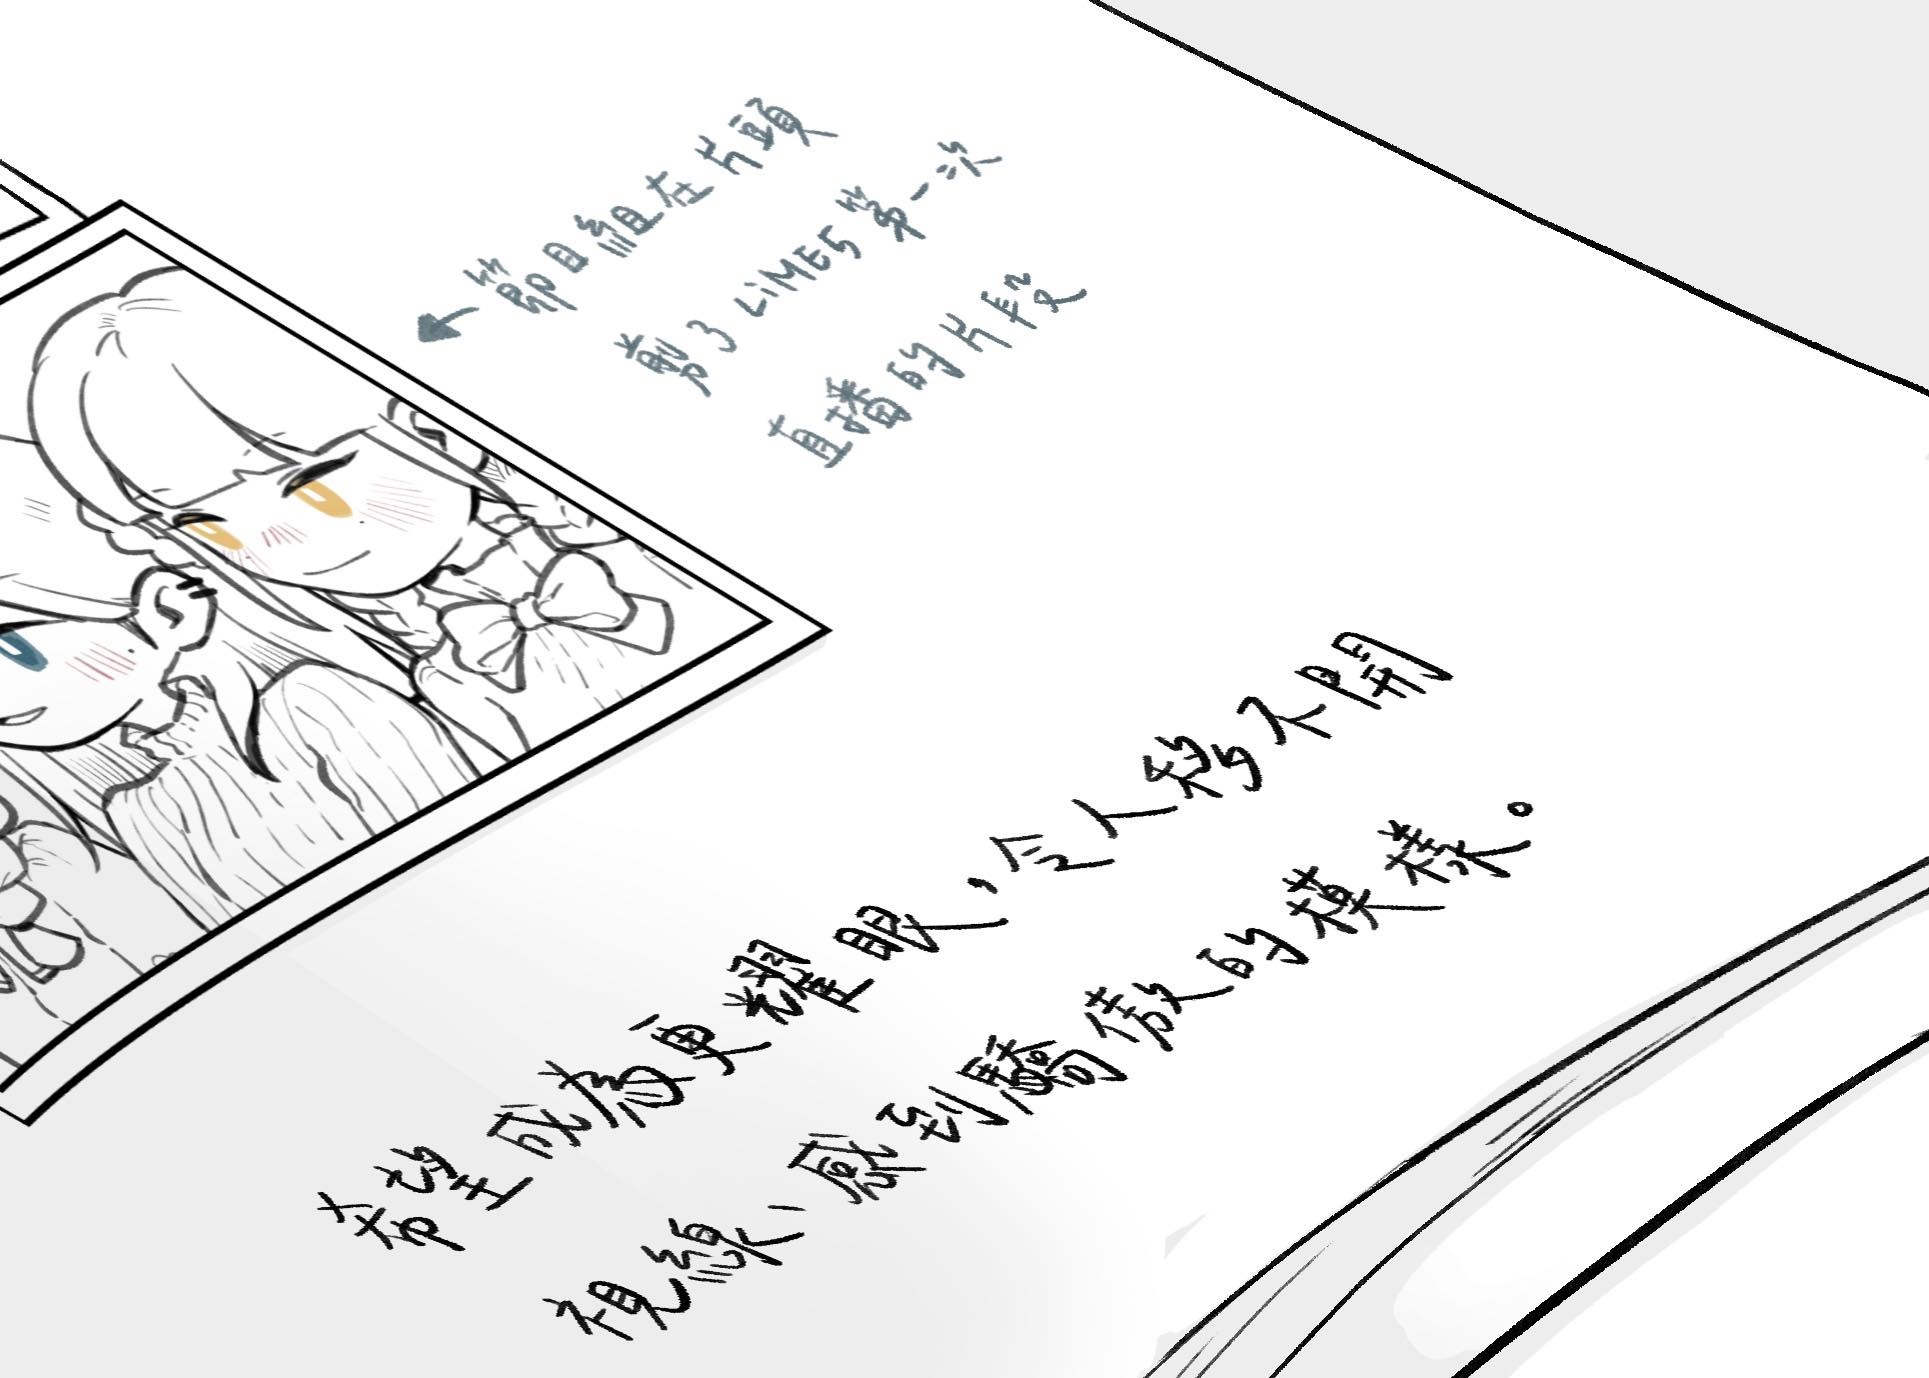 節目組在片頭
剪了LiME5第一次
直播的片段
希望成為更耀眼，令人移不開
視線、感到驕傲的模樣。